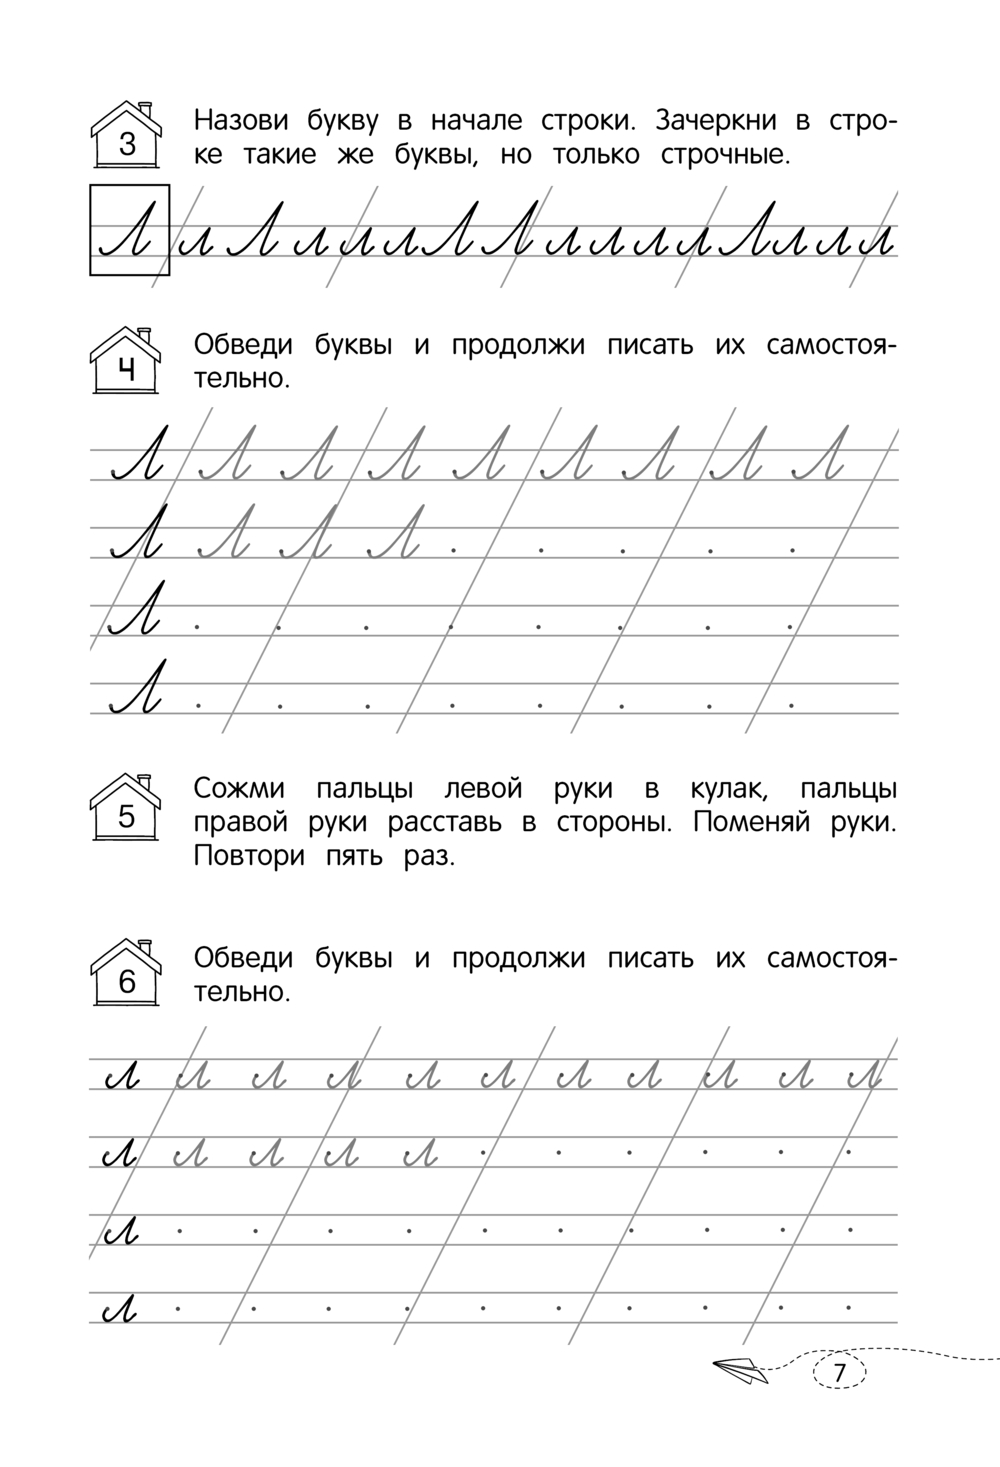 3
Назови букву в начале строки. Зачеркни в стро-
ке такие же буквы, но только строчные.
Л л Л л л л Л Л л л л л Л л л л
4
Обведи буквы и продолжи писать их самостоя-
тельно.
Л Л Л Л Л Л Л Л Л
Л Л Л Л . . . . .
Л . . . . . . . .
Л . . . . . . . .
5
Сожми пальцы левой руки в кулак, пальцы
правой руки расставь в стороны. Поменяй руки.
Повтори пять раз.
6
Обведи буквы и продолжи писать их самостоя-
тельно.
л л л л л л л л л л л
л л л л л . . . . . .
л . . . . . . . . . .
л . . . . . . . . . .
7